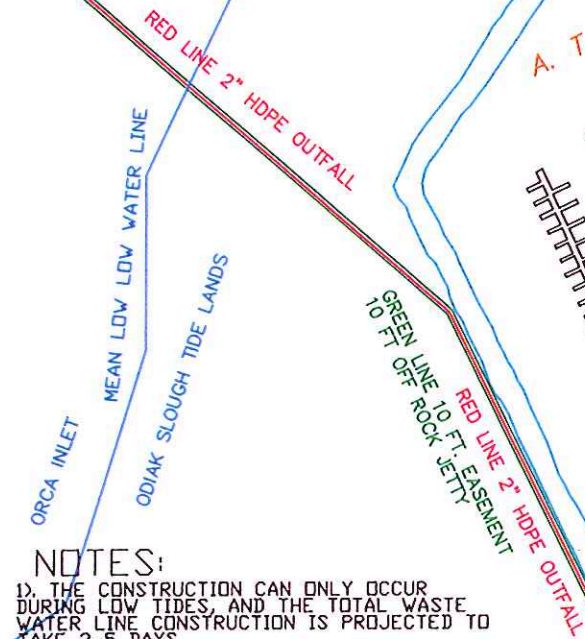 RED LINE 2" HDPE OUTFALL
A. T
MEAN LOW LOW WATER LINE
ODIAK SLOUGH TIDE LANDS
ORCA INLET
GREEN LINE 10 FT. EASEMENT
10 FT OFF ROCK JETTY
RED LINE 2" HDPE OUTFALL
NOTES:
1). THE CONSTRUCTION CAN ONLY OCCUR
DURING LOW TIDES, AND THE TOTAL WASTE
WATER LINE CONSTRUCTION IS PROJECTED TO
TAKE 2.5 DAYS